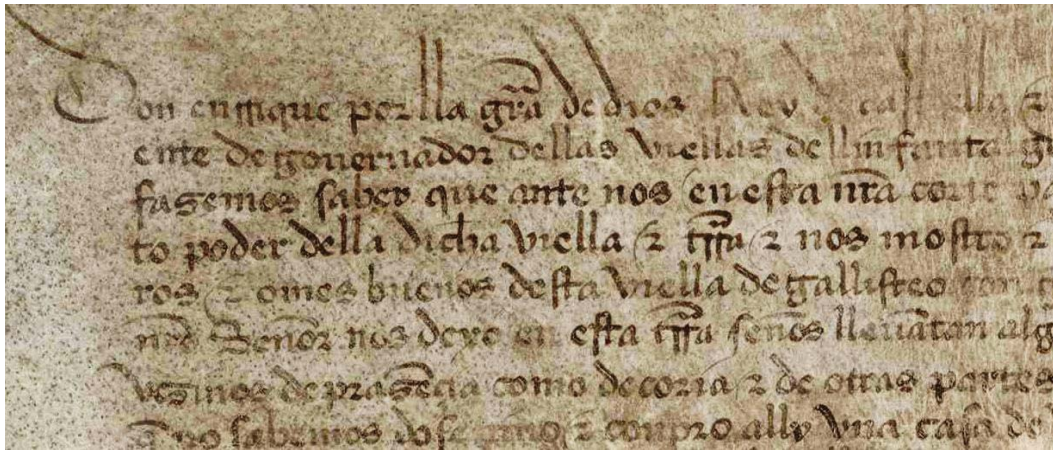 Don enrrique por lla gra de dios Rey de castiella &
ente de governador dellas viellas dellinfanta
fasemos saber que ante nos en esta nra corte
to poder della dicha viella & trra & nos mostro &
ros & omes buenos desta viella de gallisteo
nro Senor nos dexo en esta trra senos llevatan alg
vesinos de prasencia como de coria & de otras partes
& no sabemos & conpro ally vna casa de